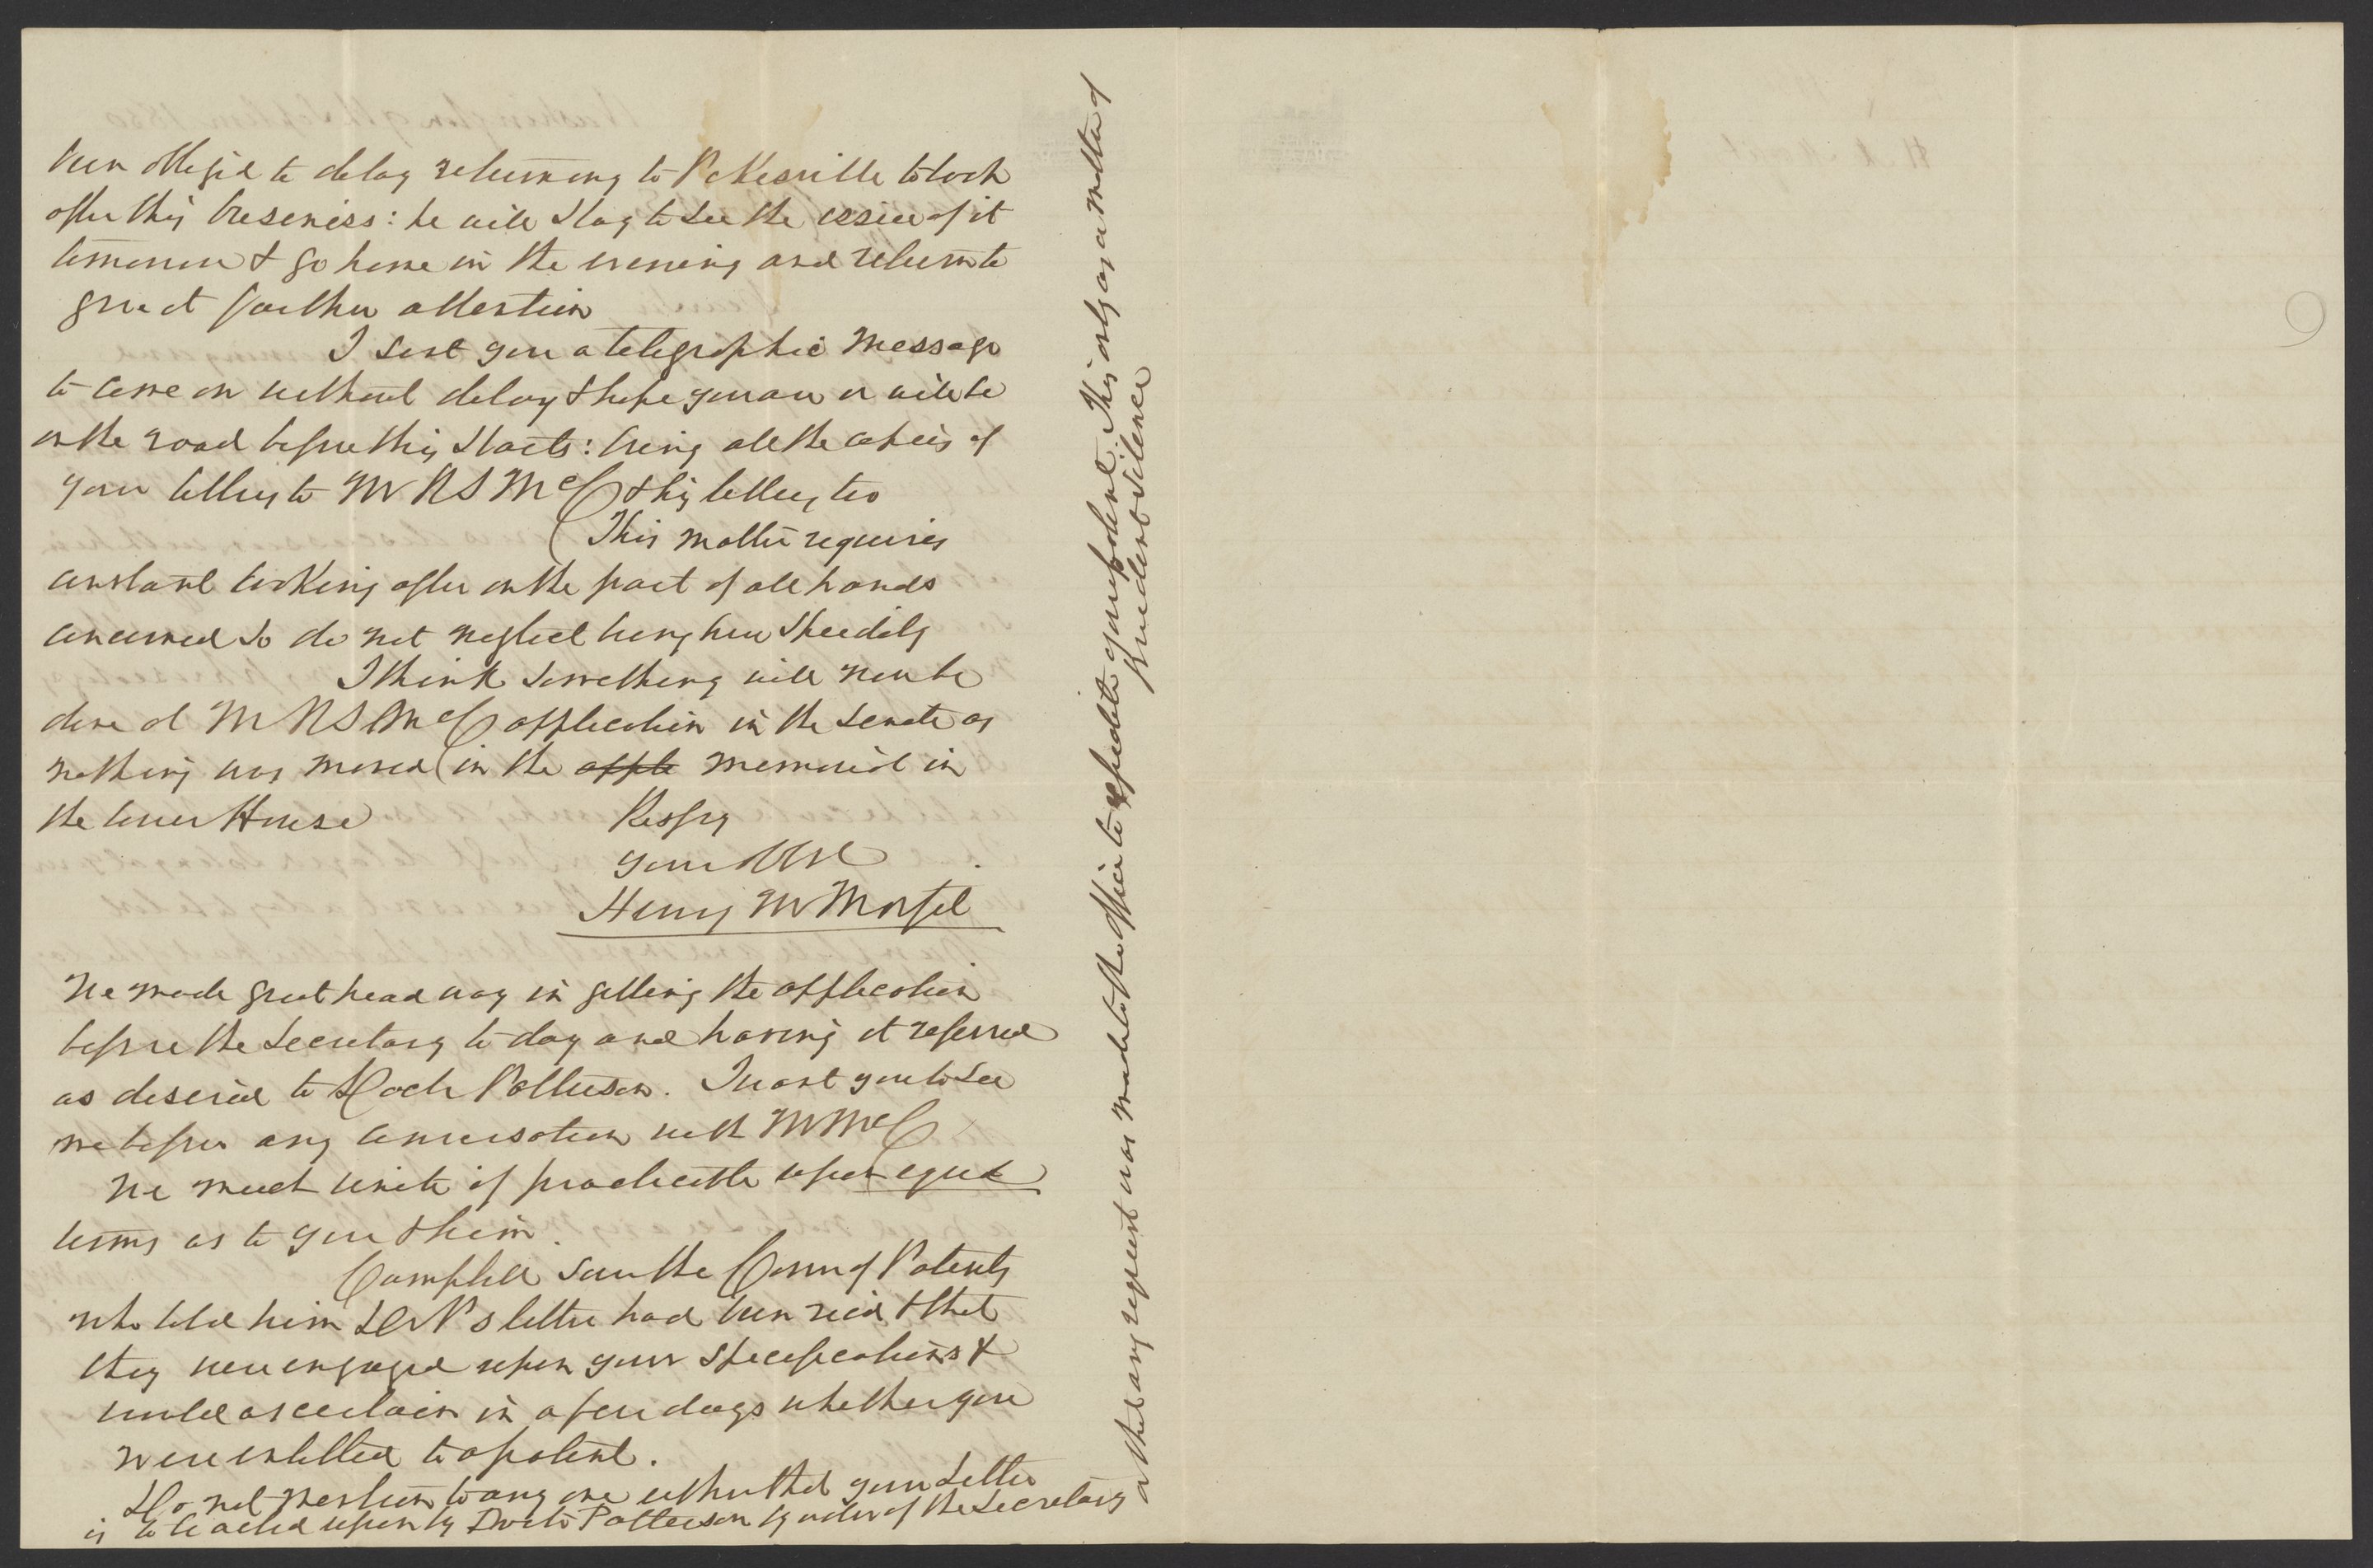 been obliged to delay returning to Pikesville to look
after this business: he will stay to see the issue of it
tomorrow & go home in the evening and return to
give it further attention
I sent you a telegraphic message
to come on without delay & hope you are or will be
on the road before this starts: bring all the copies of
your letters to Mr R S McC & his letters too
This matter requires
constant looking after on the part of all hands
concerned so do not neglect being here speedily
I think something will now be
done at Mr R S McC application in the Senate as
nothing was moved in the apple memorial in
the lower House
Resfy
your Obt
Henry M Morfit
We made great head way in getting the application
before the Secretary to day and having it referred
as desired to Doctr Patterson. I want you to see
me before any conversation with Mr McC
We must unite if practicable upon equal
terms as to you & him.
Campbell saw the Comr of Patents
who told him Dr P's letter had been recd & that
they were engaged upon your specifications &
would ascertain in a few days whether you
were entitled to a patent.
Do not mention to any one either that your letter
is to be acted upon by Doctr Patterson by order of the Secretary
or that any request was made to the Office to expedite your patent. This only as a matter of
prudent silence